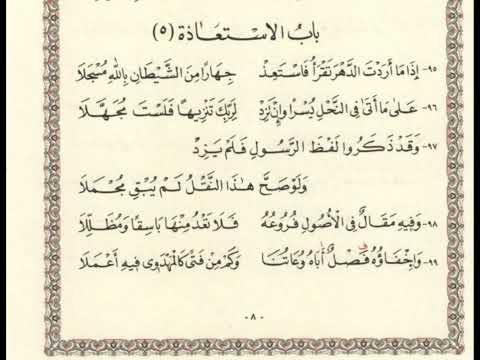 بَابُ الِاسْتِعَاذَةِ (٥)
٩٥- إِذَا مَا أَرَدْتَ الدَّهْرَ تَقْرَأُ فَاسْتَعِذْ جِهَارًا مِنَ الشَّيْطَانِ بِاللهِ مُسْجَلَا
٩٦- عَلَى مَا أَتَى فِي النَّحْلِ يُسْرًا وَإِنْ تَزِدْ لِرَبِّكَ تَنْزِيهًا فَلَسْتَ مُجَهَّلَا
٩٧- وَقَدْ ذَكَرُوا لَفْظَ الرَّسُولِ فَلَمْ يَزِدْ
وَلَوْ صَحَّ هَذَا النَّقْلُ لَمْ يُبْقِ مُجْمَلَا
٩٨- وَفِيهِ مَقَالٌ فِي الْأُصُولِ فُرُوعُهُ فَلَا تَعْدُ مِنْهَا بَاسِقًا وَمُظَلِّلَا
٩٩- وَإِخْفَاؤُهُ فَصْلٌ أَبَاهُ وُعَاتُنَا وَكَمْ مِنْ فَتًى كَالْمَهْدَوِي فِيهِ أَعْمَلَا
-٨-